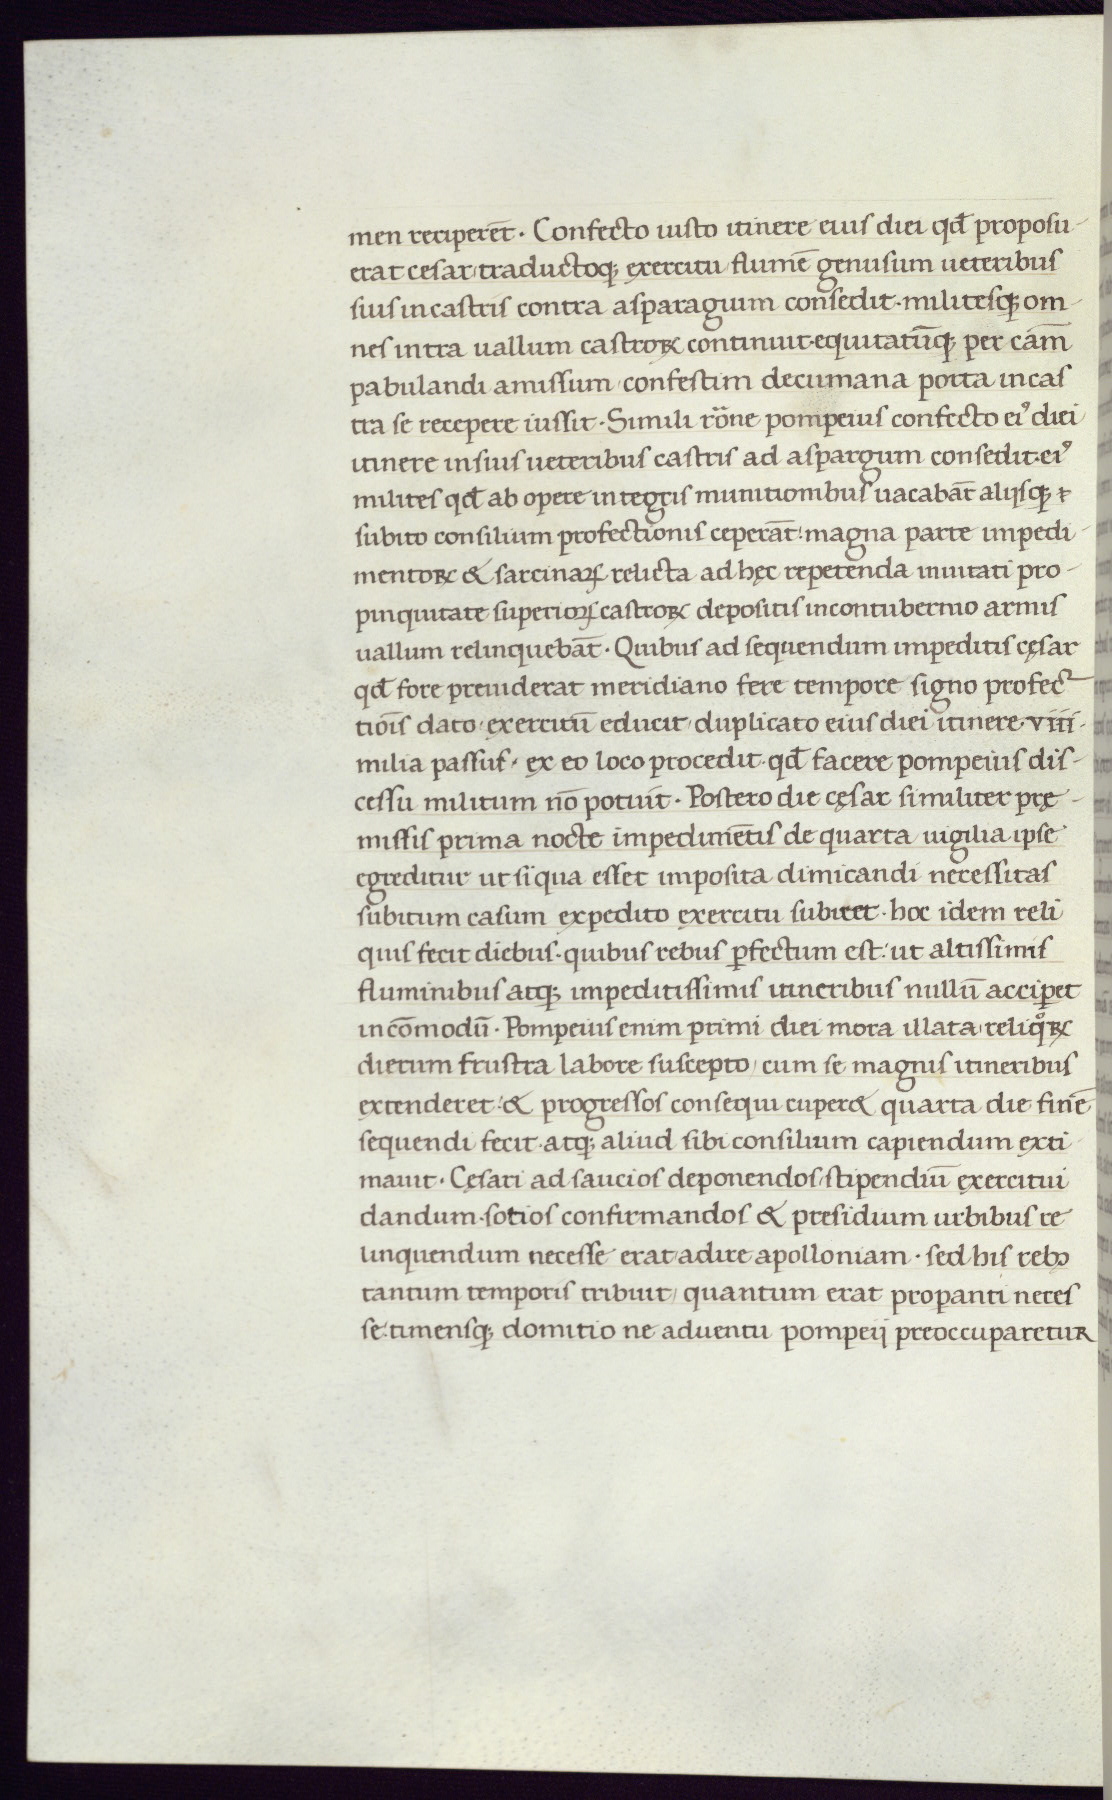 men reciperēt · Confecto iusto itinere eius diei qđ proposu-
erat cesar traductoqꝫ exercitu flumē genusum ueteribus
suis in castris contra asparagium consedit · militesqꝫ om-
nes intra uallum castroꝝ continuit · equitatūqꝫ per cām
pabulandi amissum confestim decumana porta in cas
tra se recepere iussit · Simili rōne pompeius confecto eiꝰ diei
itinere in suis ueteribus castris ad aspargum consedit · eiꝰ
milites qđ ab opere integris munitionibus uacabāt alijsqꝫ ⁊
subito consilium profectionis ceperāt: magna parte impedi-
mentoꝝ & sarcinaꝝ relicta ad hęc repetenda inuitati pro-
pinquitate superioꝝ castroꝝ depositis in contubernio armis
uallum relinquebāt · Quibus ad sequendum impeditis cęsar
qđ fore preuiderat meridiano fere tempore signo profec
tiōis dato exercitū educit duplicato eius diei itinere · viii ·
milia passuf ex eo loco procedit · qđ facere pompeius dis-
cessu militum nō potuit · Postero die cęsar similiter prę-
missis prima nocte impedimētis de quarta uigilia ipse
egreditur ut si qua esset imposita dimicandi necessitas
subitum casum expedito exercitu subiret · hoc idem reli
quis fecit diebus · quibus rebus ꝑfectum est: ut altissimis
fluminibus atqꝫ impeditissimis itineribus nullū acciꝑet
incōmodū · Pompeius enim primi diei mora illata reliqͦꝝ
dierum frustra labore suscepto cum se magnis itineribus
extenderet & progressos consequi cuper& quarta die finē
sequendi fecit · atqꝫ aliud sibi consilium capiendum exti
mauit · Cęsari ad saucios deponendos stipendiū exercitui
dandum · sotios confirmandos & presidium urbibus re
linquendum necesse erat adire apolloniam · sed his rebꝫ
tantum temporis tribuit quantum erat propanti neces
se: timensqꝫ domitio ne aduentu pompeij preoccuparetur